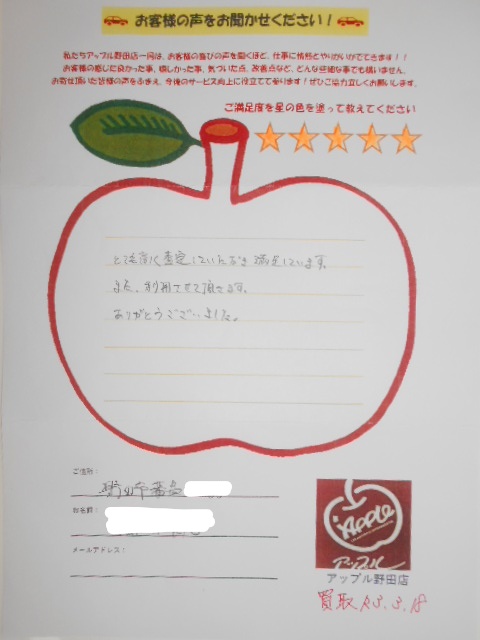 お客様の声をお聞かせください！
私たちアップル野田店一同は、お客様の喜びの声を聞くほど、仕事に情熱とやりがいがでてきます！！
お客様の感じた良かった事、嬉しかった事、気づいた点、改善点など、どんな些細な事でも構いません。
お寄せ頂いた皆様の声をふまえ、今後のサービス向上に役立てて参ります！ぜひご協力宜しくお願いします。
ご満足度を星の色を塗って教えてください
査定していただき満足しています。
また、利用させて頂きます。
ありがとうございました。
ご住所：
野田市
お名前：
メールアドレス：
APPLE
アップル
アップル野田店
買取 R3.3.18